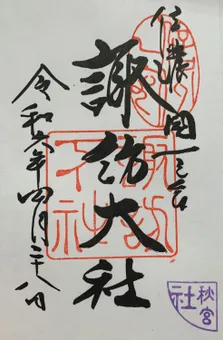 信濃國一之宮
諏訪大社
令和六年四月二十八日
諏訪
下社
秋宮
社